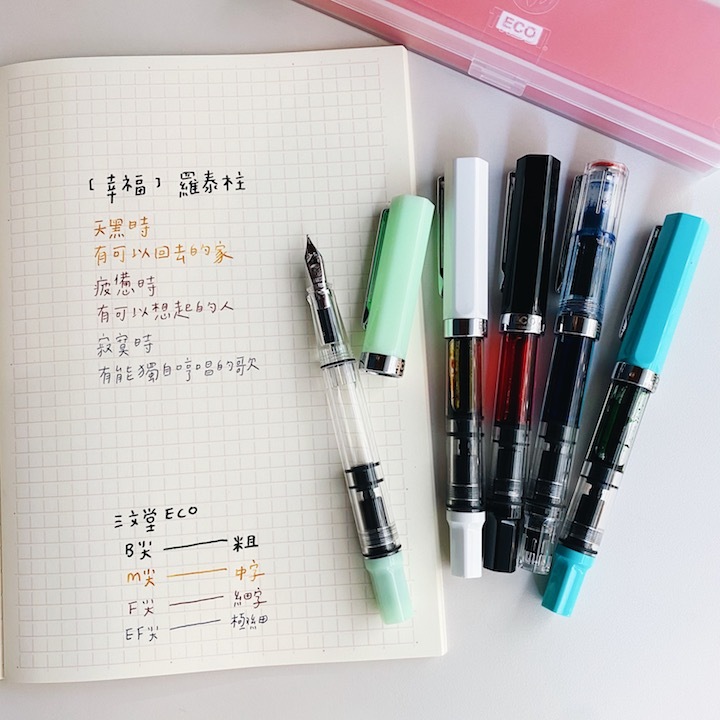 ECO
〔幸福〕羅泰柱
天黑時
有可以回去的家
疲憊時
有可以想起的人
寂寞時
有能獨自哼唱的歌
三文堂 ECO
B尖 —— 粗
M尖 —— 中字
F尖 —— 細字
EF尖 —— 極細